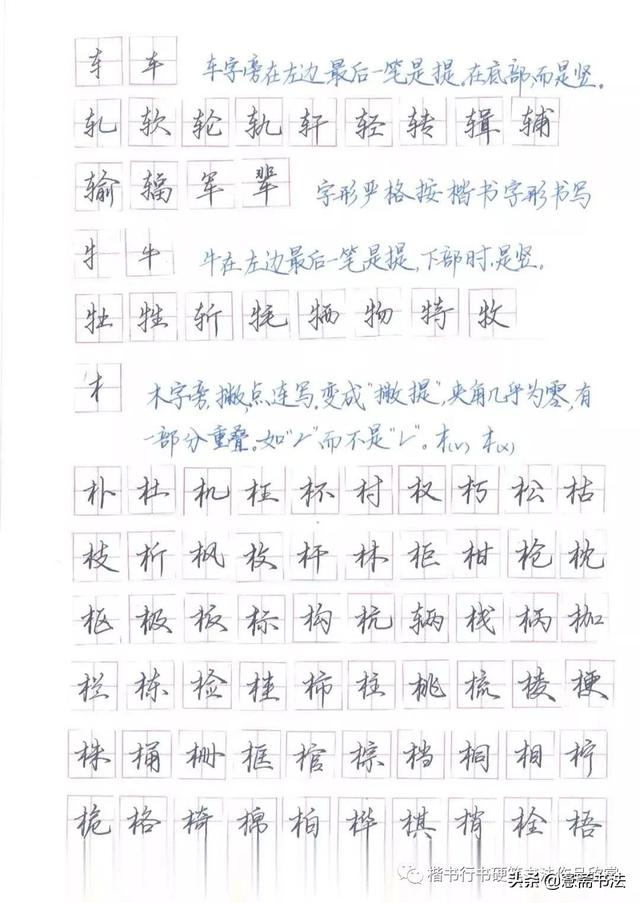 车 车 车字旁在左边最后一笔是提。在底部,而是竖。
轧 软 轮 轨 轩 轻 转 辑 辅
输 辐 军 辈 字形严格按楷书字形书写
牛 牛 牛在左边最后一笔是提,下部时,是竖。
牡 牲 斩 牦 牺 物 特 牧
木 木字旁,撇点,连写,变成"撇提",夹角几乎为零,有
一部分重叠。如"ㄥ"而不是"ㄴ"。木(√) 木(×)
朴 杜 机 枉 杯 村 权 朽 松 枯
枝 析 枫 枚 杆 林 柜 柑 枪 枕
枢 极 板 标 构 杭 辆 栈 柄 枷
栏 栋 检 桂 柿 柱 桃 梳 棱 梗
株 桶 栅 框 棺 棕 档 桐 相 柠
桅 格 椅 棉 柏 桦 棋 梢 栓 梧
楷书行书硬笔书法作品欣赏
头条@慧斋书法